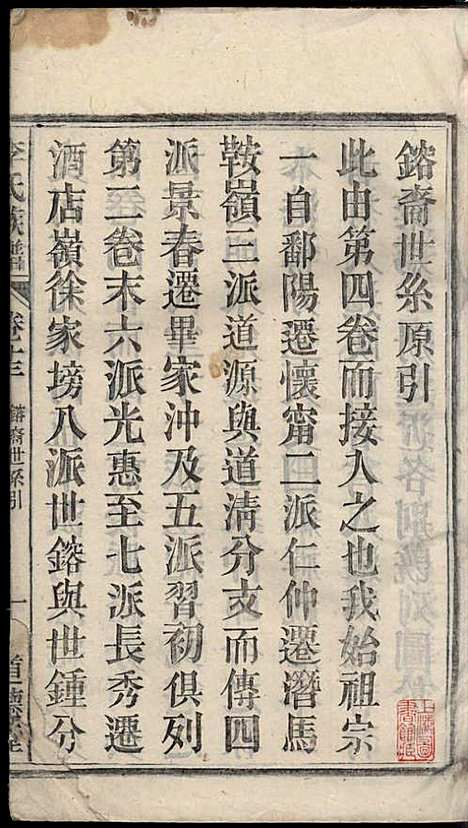 鎔裔世糸原引
此由第四卷而接入之也我始祖宗
一自鄱陽遷懷甯二派仁仲遷潛馬
鞍嶺三派道源與道清分支而傳四
派景春遷畢家沖及五派習初俱列
第二卷末六派光惠至七派長秀遷
酒店嶺徐家塝八派世鎔與世鍾分
李氏族譜
卷十三
鎔裔世系引
一